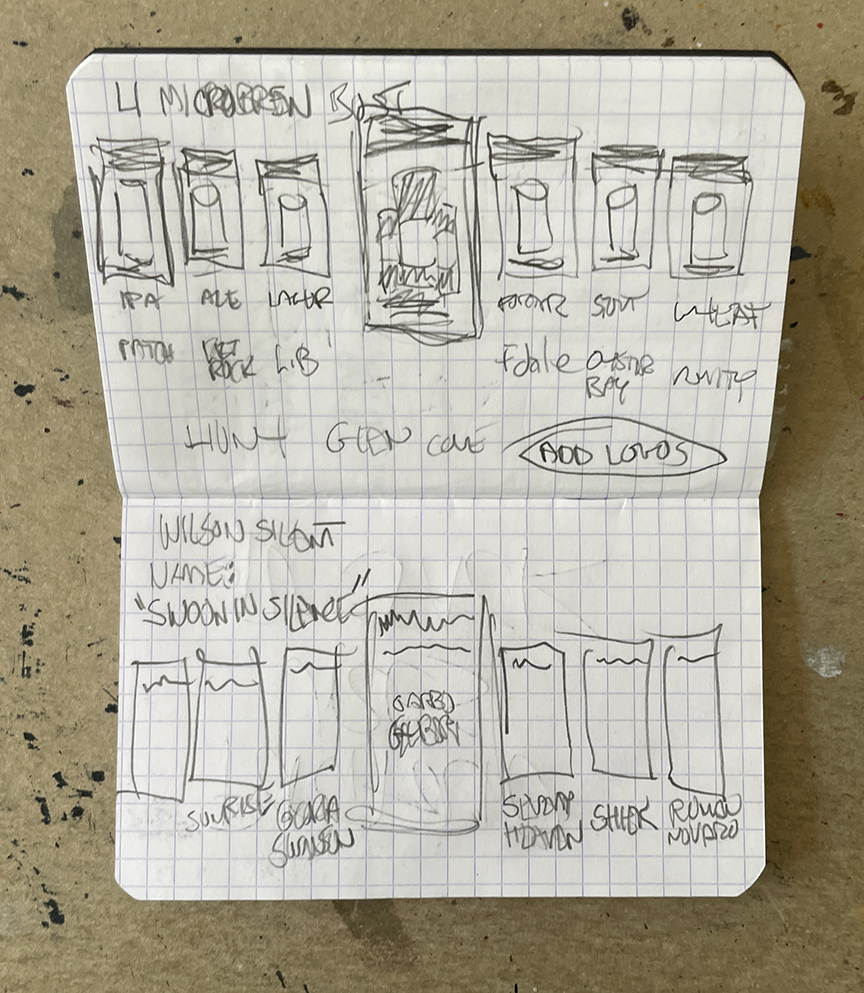 4 MICROBREW
IPA ALE LAGER PORTER STOUT WHEAT
PATCH Fdale OYSTER
ROCK LIB BAY
HUNT GLEN COVE ADD LOGOS
WILSON SILENT
NAME:
"SWOON IN SILENCE"
GARBO
GILBERT
SUNRISE GLORIA SEVENTH SHIEK
SWANSON HEAVEN NOVARO